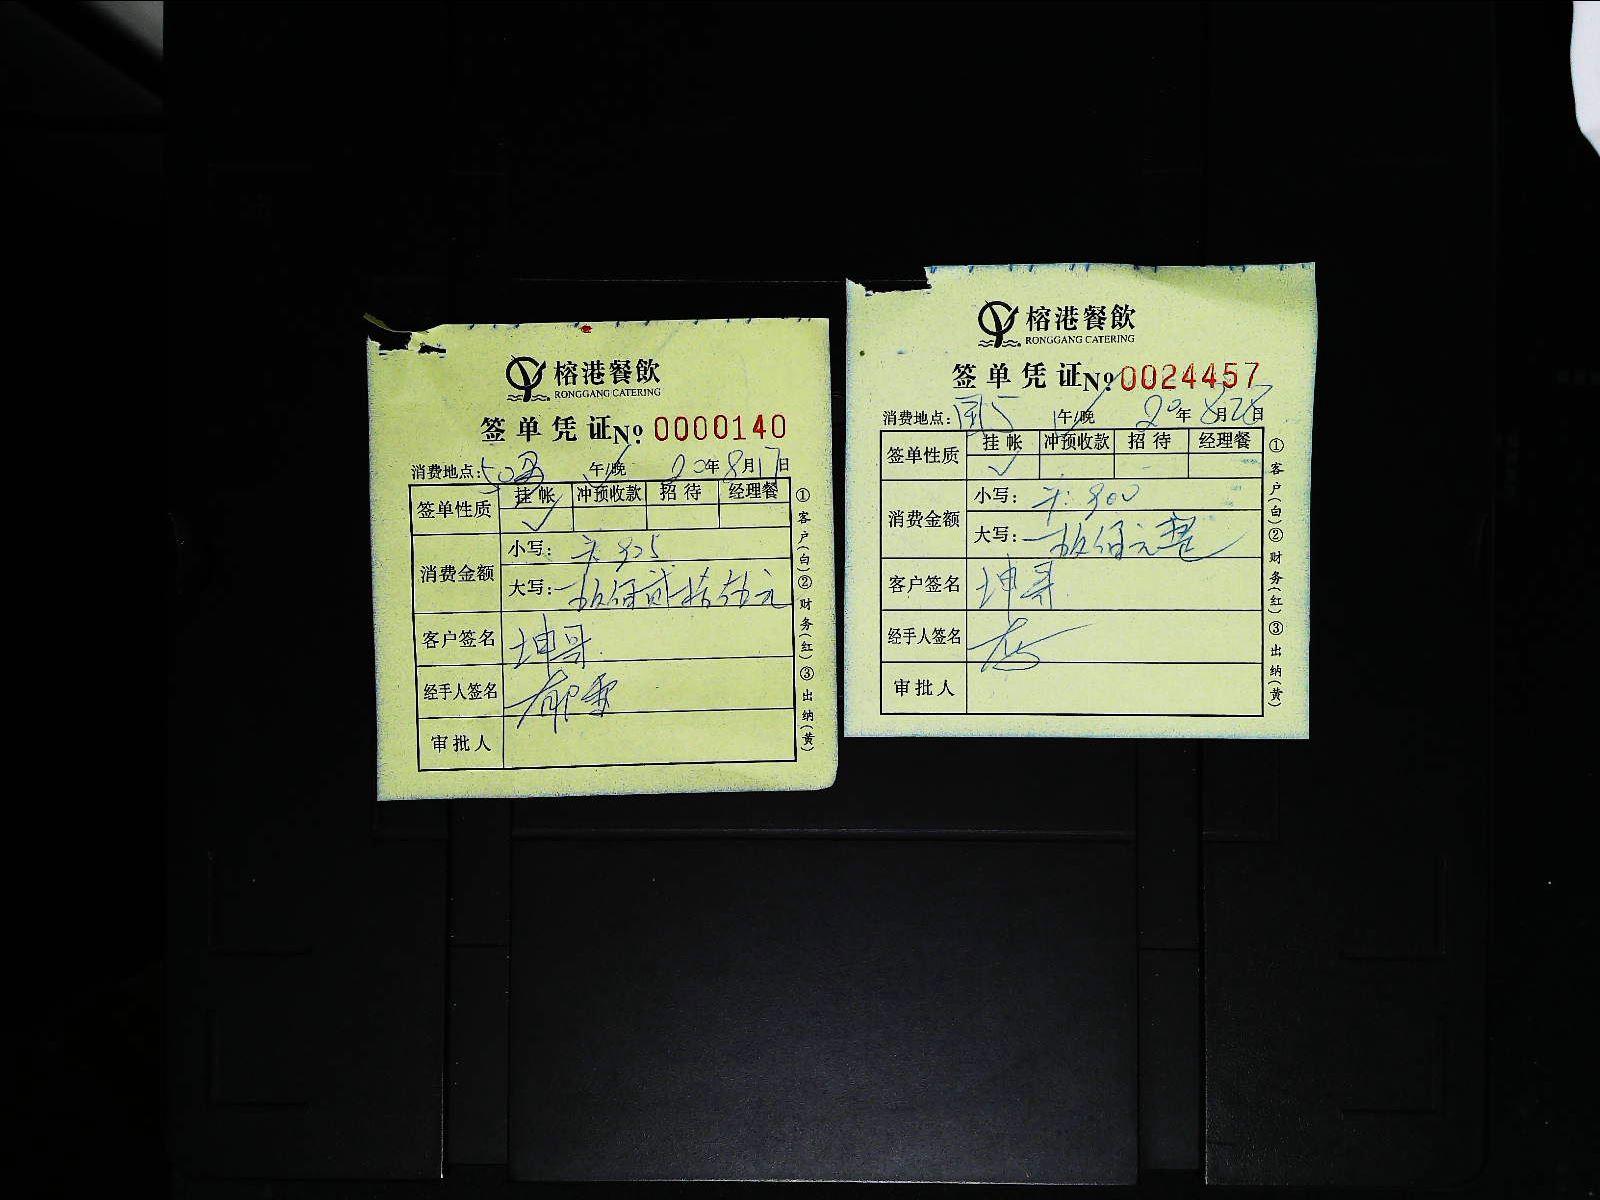 榕港餐飲
RONGGANG CATERING
签单凭证 No. 0000140
消费地点: 午/晚 20年8月17日
签单性质 挂帐 冲预收款 招待 经理餐
消费金额 小写: 825
大写: 捌佰贰拾伍元
客户签名 坤哥
经手人签名
审批人
①客户(白)②财务(红)③出纳(黄)
榕港餐飲
RONGGANG CATERING
签单凭证 No. 0024457
消费地点: 午/晚 20年8月28日
签单性质 挂帐 冲预收款 招待 经理餐
消费金额 小写: 800
大写: 捌佰元整
客户签名 坤哥
经手人签名
审批人
①客户(白)②财务(红)③出纳(黄)